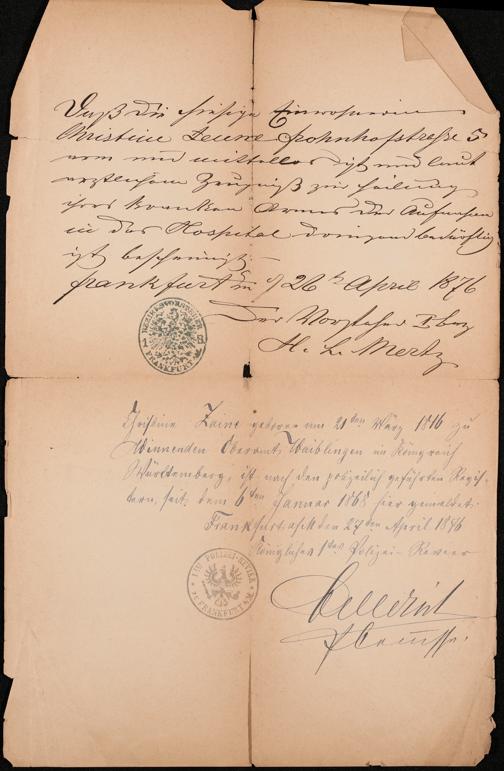 Daß die hiesige Einwohnerin
Christine Zeune Frohnhofstraße 5
arm und mittellos ist und laut
ärztlichem Zeugniß zur Heilung
ihres kranken Armes der Aufnahme
in das Hospital dringend bedürftig
ist bescheinigt.
Frankfurt a/m 26t April 1876
Der Vorsteher Bez
H. L. Mertz
BEZIRKSVORSTEHER
FRANKFURT A/M
Christine Zaine geboren am 21ten März 1816 zu
Winnenden Oberamt Waiblingen im Königreich
Württemberg, ist nach den polizeilich geführten Regis-
tern, seit dem 6ten Januar 1868 hier gemeldet.
Frankfurt a/M den 27ten April 1876
Königliches 1tes Polizei-Revier
POLIZEI-REVIER
FRANKFURT A/M